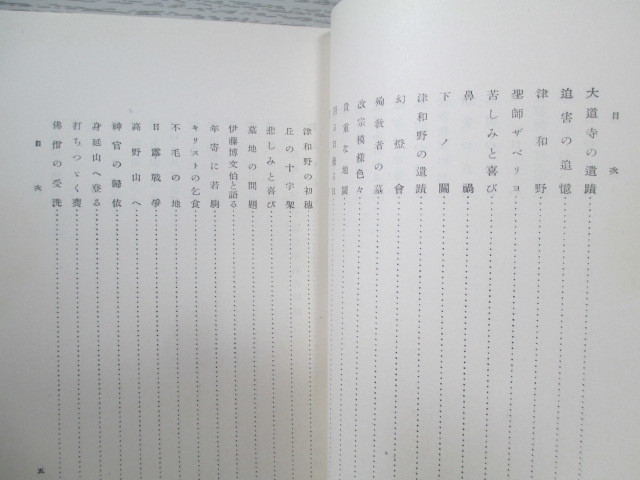 目次
大道寺の遺蹟
迫害の追憶
津和野
聖師ザベリヨ
苦しみと喜び
鼻禍
下ノ關
津和野の遺蹟
幻燈會
殉敎者の墓
改宗模樣色々
貴重な地圖
津和野の初穗
丘の十字架
悲しみと喜び
墓地の問題
伊藤博文伯と語る
年寄に若駒
キリストの乞食
不毛の地
日露戰爭
高野山へ
神官の歸依
身延山へ登る
打ちつゞく喪
佛僧の受洗
目次
五